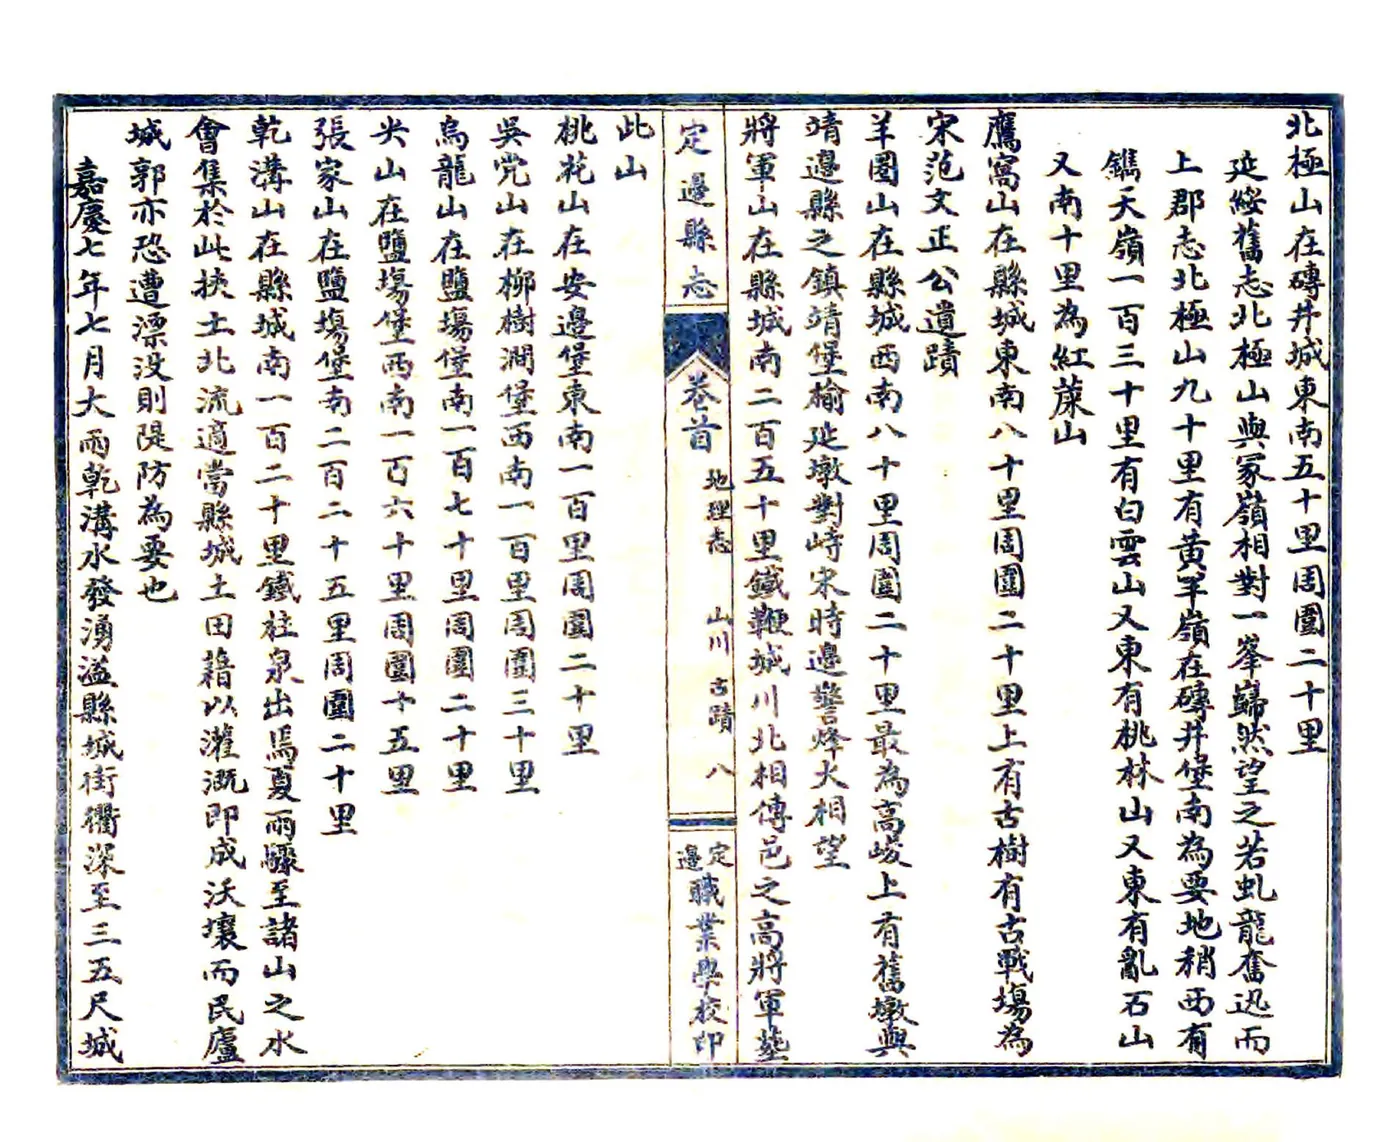 北極山在磚井城東南五十里周圍二十里
延綏舊志北極山與冢嶺相對一峯巋然望之若虬龍奮迅而
上郡志北極山九十里有黃羊嶺在磚井堡南為要地稍西有
鐫天嶺一百三十里有白雲山又東有桃林山又東有亂石山
又南十里為紅蓙山
鷹窩山在縣城東南八十里周圍二十里上有古樹有古戰塲為
宋范文正公遺蹟
羊圈山在縣城西南八十里周圍二十里最為高峻上有舊墩與
靖邊縣之鎮靖堡榆延墩對峙宋時邊警烽火相望
將軍山在縣城南二百五十里鐵鞭城川北相傳邑之高將軍塟
定邊縣志
卷首
地理志 山川 古蹟 八
定邊職業學校印
此山
桃花山在安邊堡東南一百里周圍二十里
吳党山在柳樹澗堡西南一百里周圍三十里
烏龍山在鹽塲堡南一百七十里周圍二十里
尖山在鹽塲堡西南一百六十里周圍十五里
張家山在鹽塲堡南二百二十五里周圍二十里
乾溝山在縣城南一百二十里鐵柱泉出焉夏雨驟至諸山之水
會集於此挾土北流適當縣城土田藉以灌溉即成沃壤而民廬
城郭亦恐遭漂没則隄防為要也
嘉慶七年七月大雨乾溝水發湧溢縣城街衢深至三五尺城